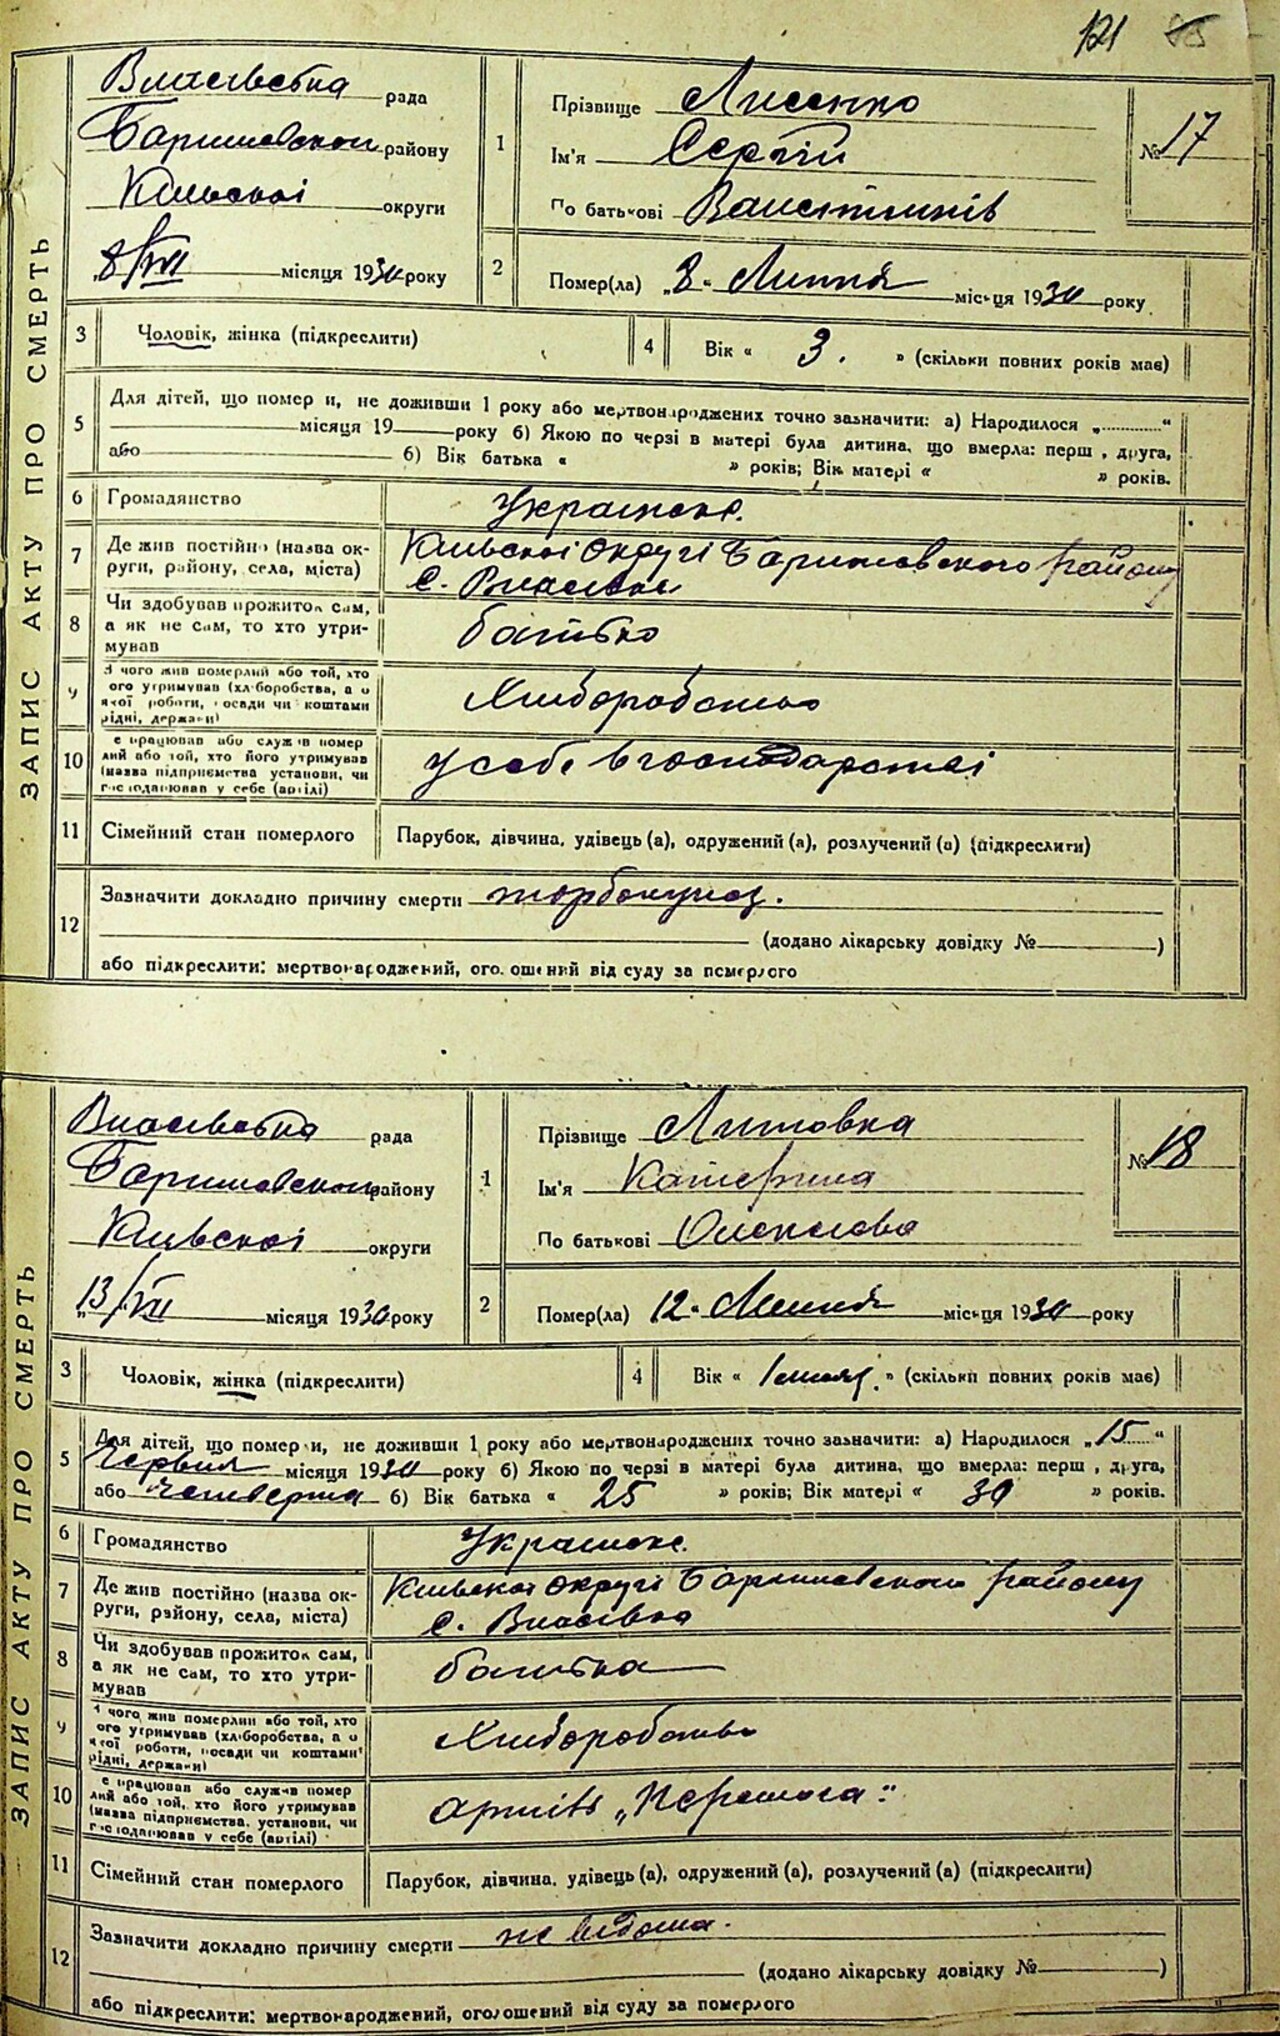 121
ЗАПИС АКТУ ПРО СМЕРТЬ
Власівська рада
Баришевского району
Київської округи
„8/VII місяця 1930 року
1
Прізвище Лисенко
Ім'я Сергій
По батькові
№ 17
2
Помер(ла) „8“ Липня місяця 1930 року
3
Чоловік, жінка (підкреслити)
4
Вік « 3. » (скільки повних років має)
5
Для дітей, що померли, не доживши 1 року або мертвонароджених точно зазначити: а) Народилося „ “
місяця 19 року б) Якою по черзі в матері була дитина, що вмерла: перша, друга,
або б) Вік батька « » років; Вік матері « » років.
6
Громадянство
Украінське.
7
Де жив постійно (назва ок-
руги, району, села, міста)
Киівськоі Округі Баришевського району
с. Власівка
8
Чи здобував прожиток сам,
а як не сам, то хто утри-
мував
батько
9
З чого жив померлий або той, хто
ого утримував (хліборобства, а о
якої роботи, посади чи коштами
рідні, держави)
Хліборобство
10
е працював або служив помер
лий або той, хто його утримував
(назва підприємства установи, чи
господарював у себе (артілі)
у себе в господарстві
11
Сімейний стан померлого
Парубок, дівчина, удівець (а), одружений (а), розлучений (а) (підкреслити)
12
Зазначити докладно причину смерти
(додано лікарську довідку № )
або підкреслити: мертвонароджений, оголошений від суду за померлого
ЗАПИС АКТУ ПРО СМЕРТЬ
Власівська рада
Баришевского району
Киівськоі округи
„13/VII місяця 1930 року
1
Прізвище Литовка
Ім'я Катерина
По батькові Олексієва
№ 18
2
Помер(ла) 12“ Липня місяця 1930 року
3
Чоловік, жінка (підкреслити)
4
Вік « 1 » (скільки повних років має)
5
Для дітей, що померли, не доживши 1 року або мертвонароджених точно зазначити: а) Народилося „15“
Червня місяця 1930 року б) Якою по черзі в матері була дитина, що вмерла: перша, друга,
або четверта б) Вік батька « 25 » років; Вік матері « 30 » років.
6
Громадянство
Украінське.
7
Де жив постійно (назва ок-
руги, району, села, міста)
Киівськоі округі Баришівського району
с. Власівка
8
Чи здобував прожиток сам,
а як не сам, то хто утри-
мував
батька
9
З чого жив померлий або той, хто
ого утримував (хліборобства, а о
якої роботи, посади чи коштами
рідні, держави)
Хліборобство
10
е працював або служив помер
лий або той, хто його утримував
(назва підприємства, установи, чи
господарював у себе (артілі)
артіль „Перемога“
11
Сімейний стан померлого
Парубок, дівчина, удівець (а), одружений (а), розлучений (а) (підкреслити)
12
Зазначити докладно причину смерти не відома.
(додано лікарську довідку № )
або підкреслити: мертвонароджений, оголошений від суду за померлого